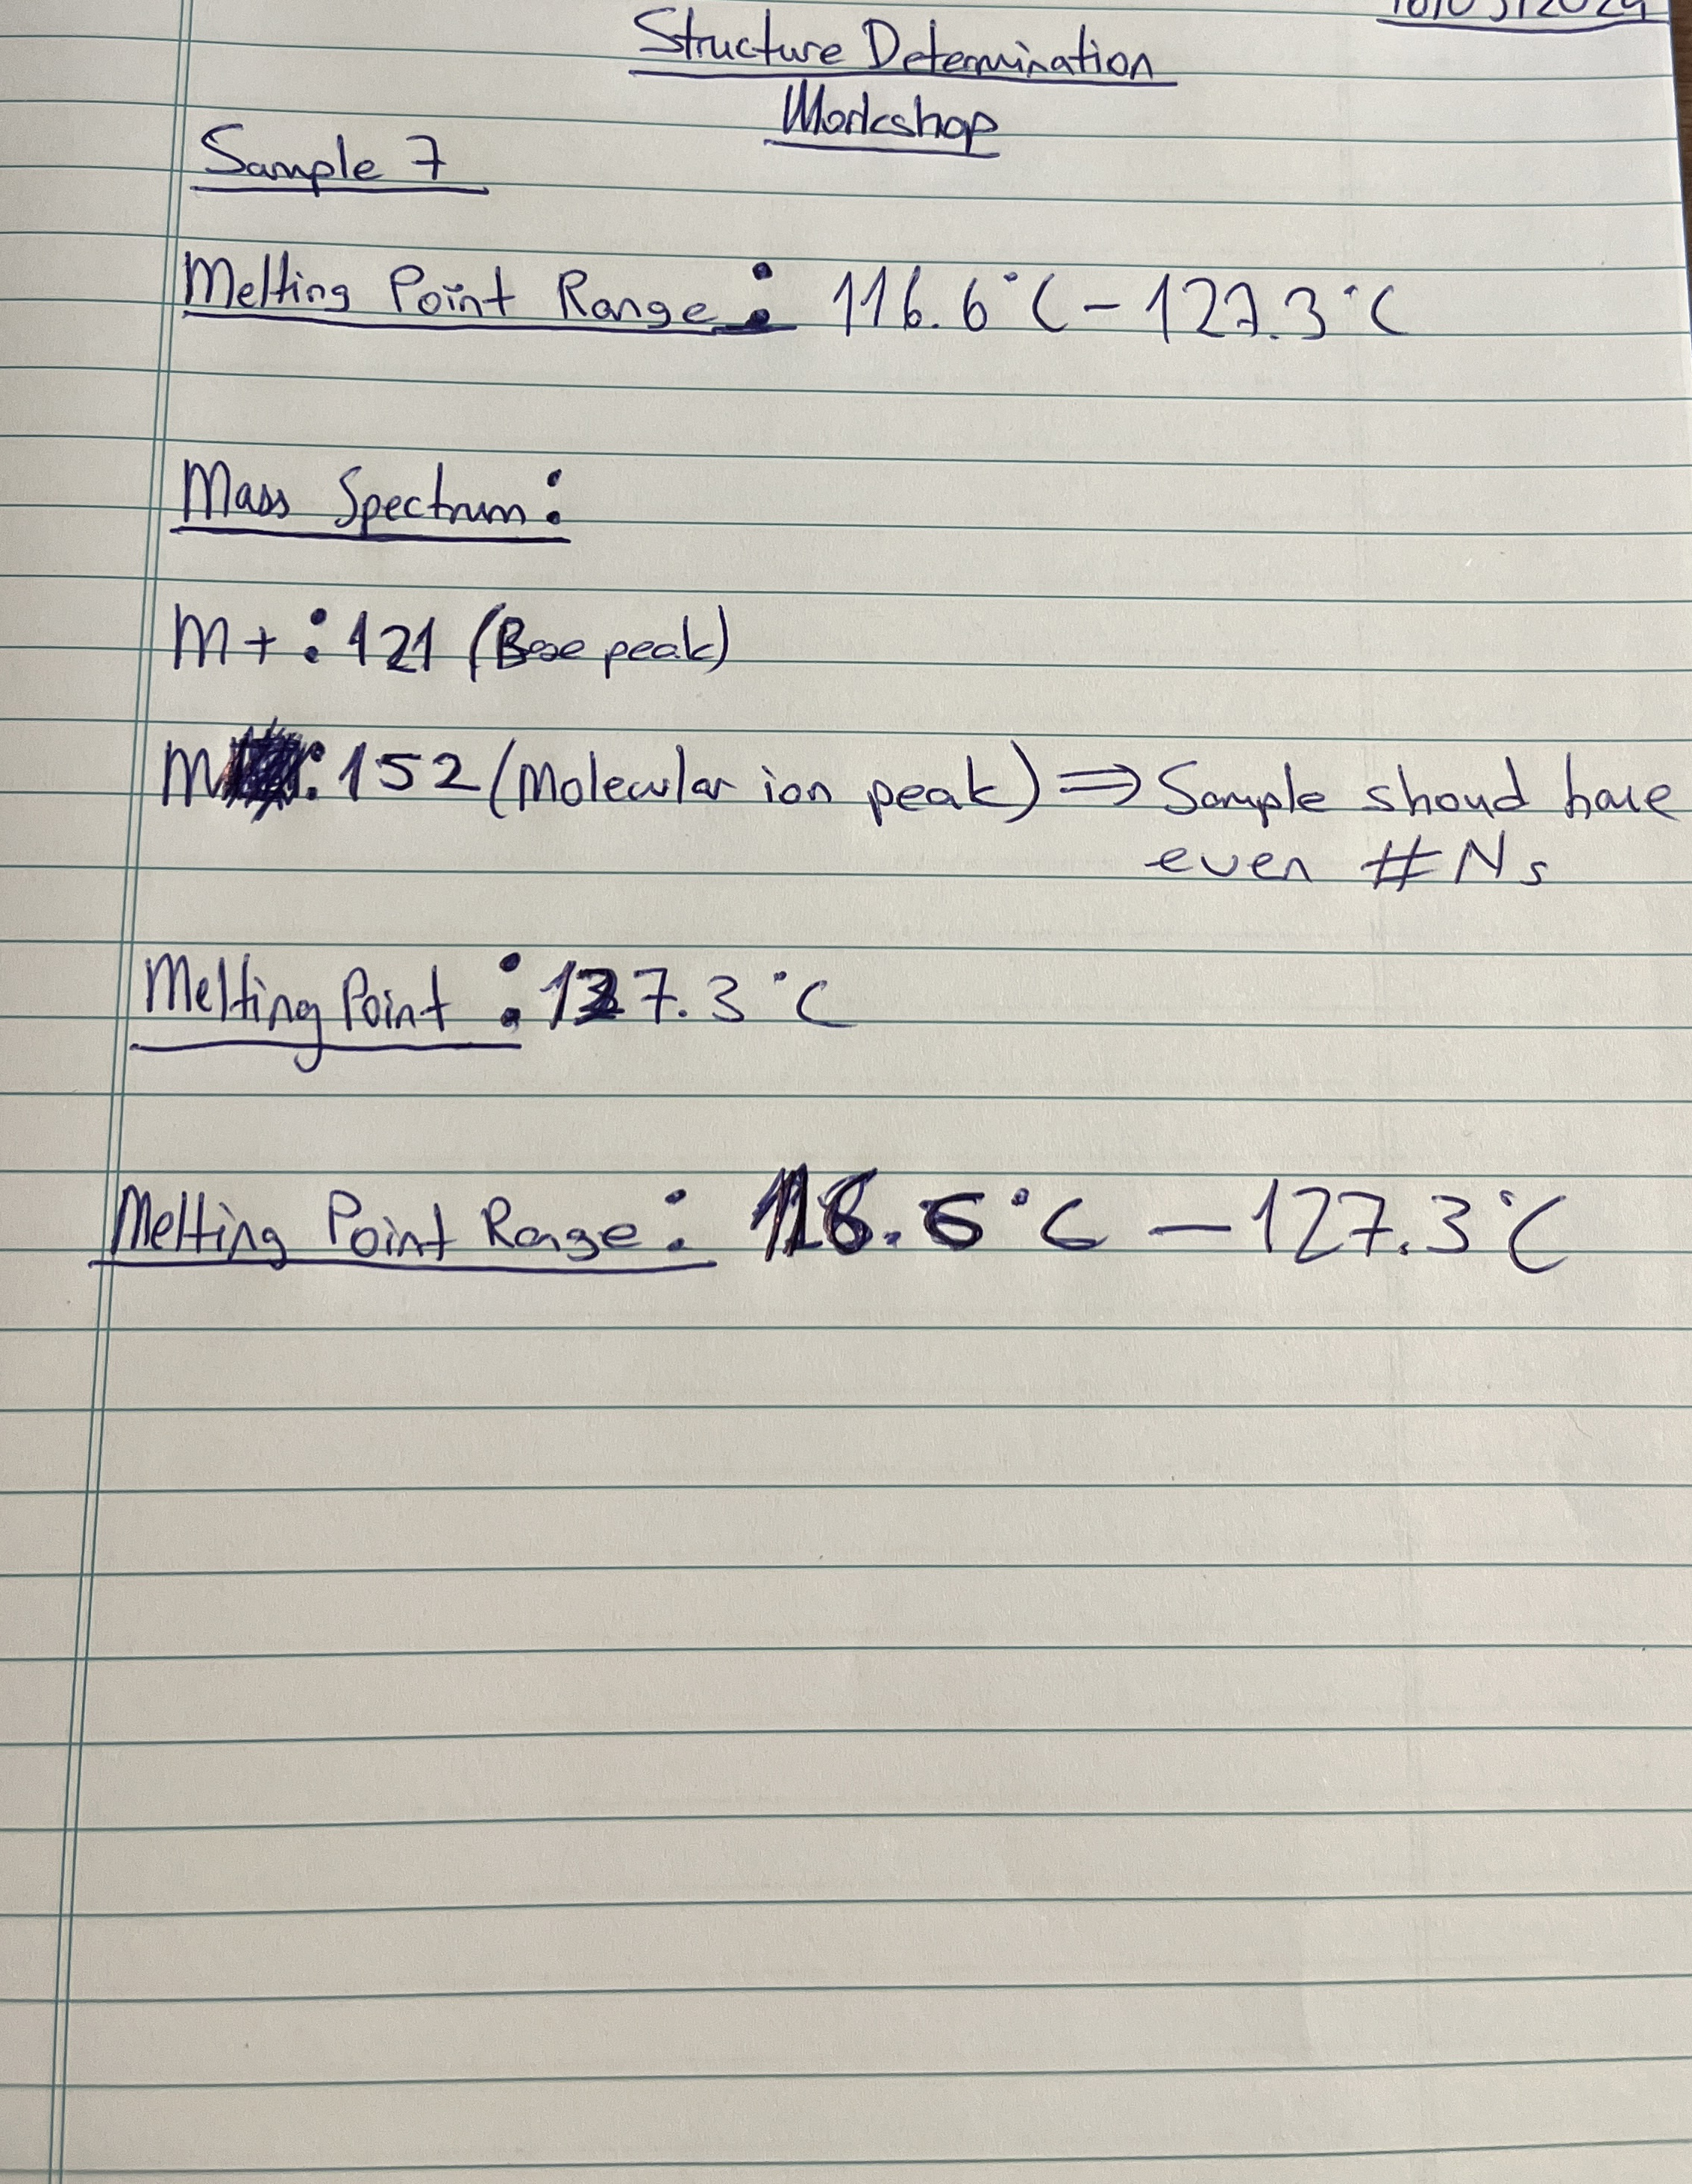 Structure Determination
Workshop
Sample 7
Melting Point Range: 116.6°C - 127.3°C
Mass Spectrum:
M+: 121 (Base peak)
M : 152 (Molecular ion peak) ⇒ Sample shoud have
even # Ns
Melting Point: 127.3°C
Melting Point Range: °C - 127.3°C